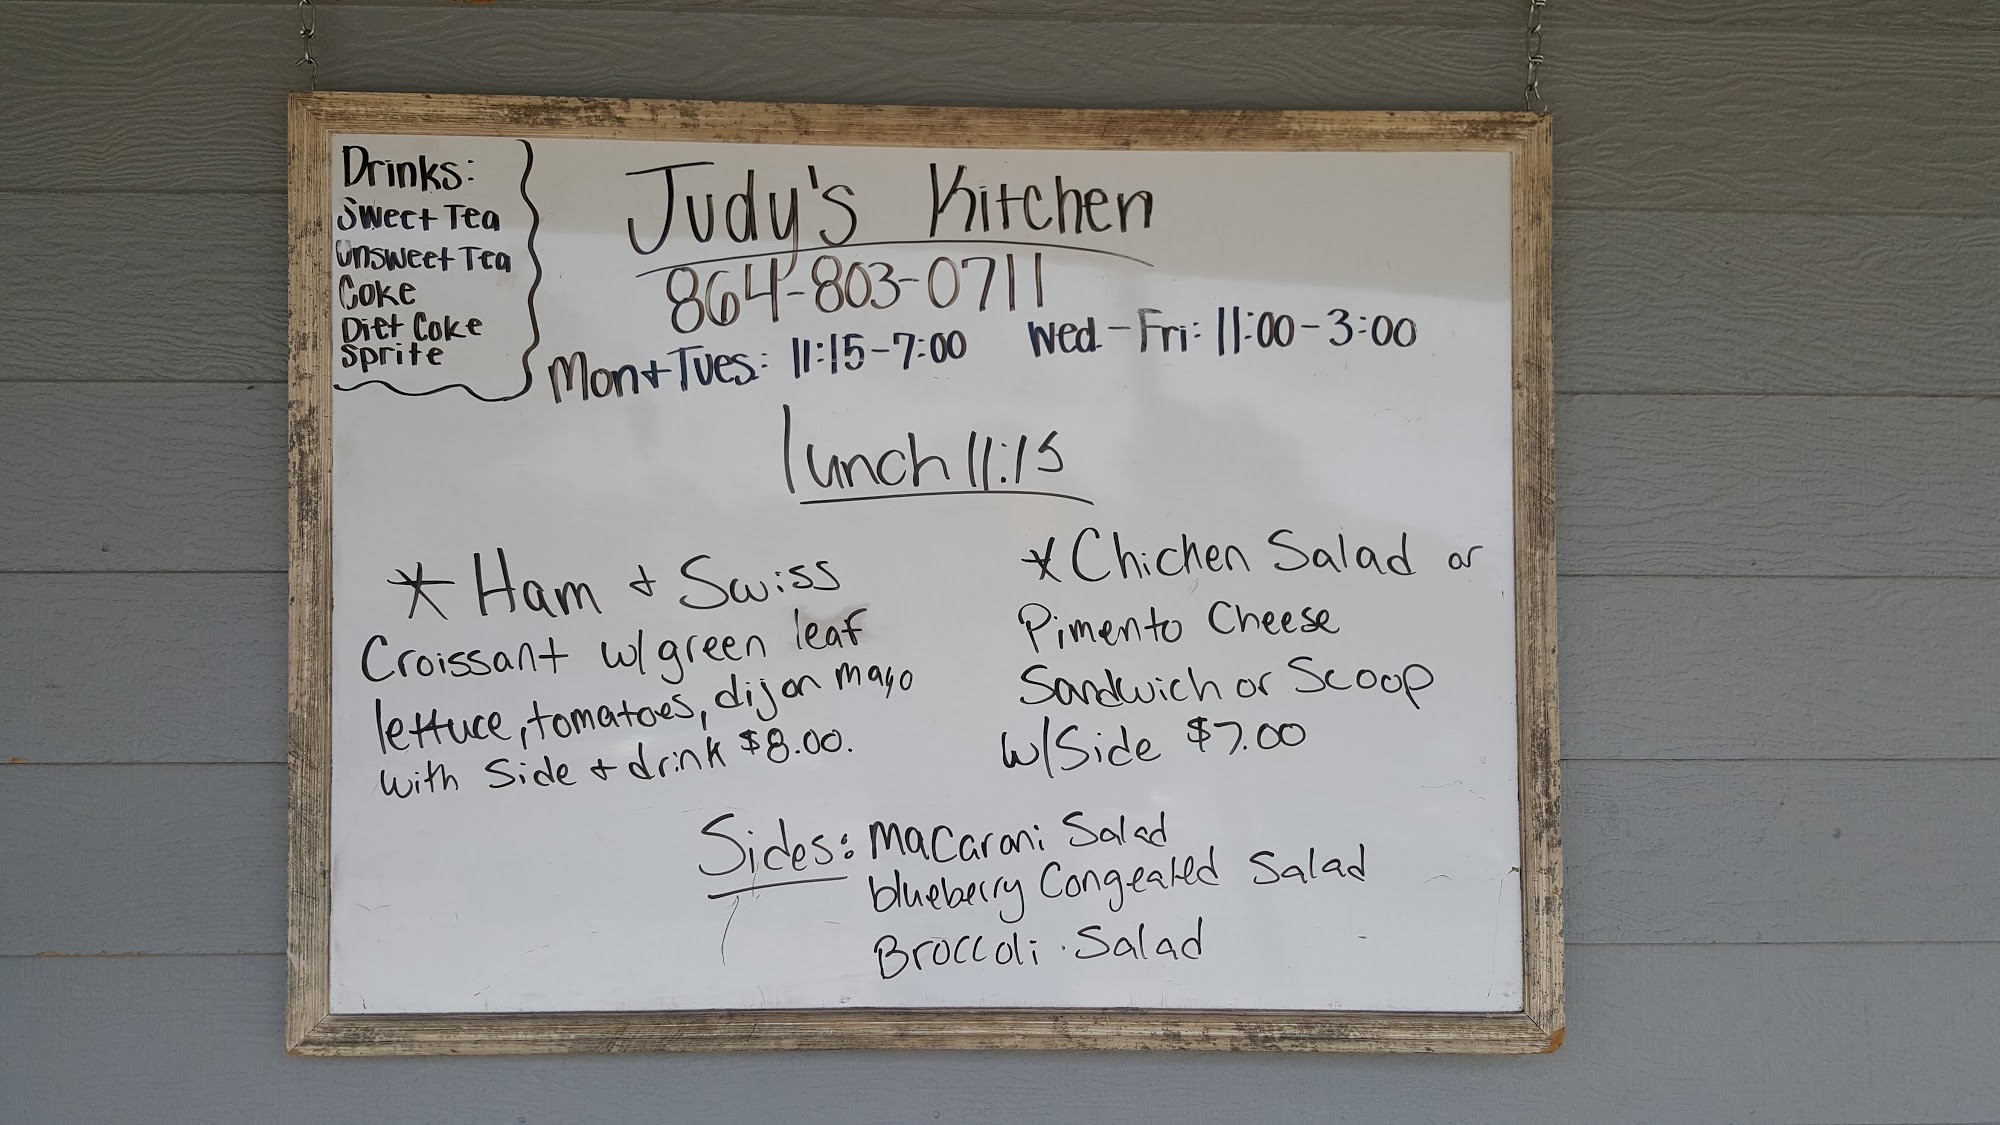 Drinks:
Sweet Tea
Unsweet Tea
Coke
Diet Coke
Sprite
Judy's Kitchen
864-803-0711
Mon + Tues: 11:15-7:00 Wed-Fri: 11:00-3:00
lunch 11:15
* Ham + Swiss
Croissant w/ green leaf
lettuce, tomatoes, dijon mayo
with Side + drink $8.00.
* Chicken Salad or
Pimento Cheese
Sandwich or Scoop
w/ Side $7.00
Sides: Macaroni Salad
blueberry Congealed Salad
Broccoli Salad